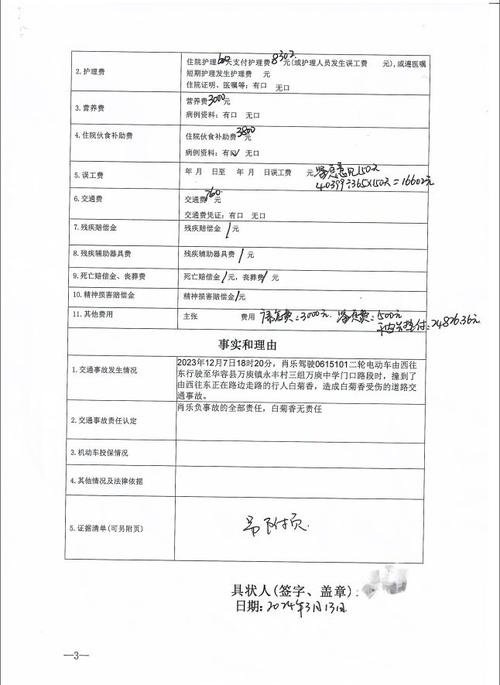 2.护理费
住院护理60天支付护理费8302元(或护理人员发生误工费 元),或遵医嘱
短期护理发生护理费 元
住院证明、医嘱等:有口 无口
3.营养费
营养费3000元
病例资料:有口 无口
4.住院伙食补助费
住院伙食补助费3800
病例资料:有 无口
5.误工费
年 月 日至 年 月 日误工费 鉴定意见150天
40399÷365X150天=16602元
6.交通费
交通费760元
交通费凭证:有口 无口
7.残疾赔偿金
残疾赔偿金/元
8.残疾辅助器具费
残疾辅助器具费/元
9.死亡赔偿金、丧葬费
死亡赔偿金/元,丧葬费/元
10.精神损害赔偿金
精神损害赔偿金/元
11.其他费用
主张 费用 3000元 鉴定费:1500元
74876.36元
事实和理由
1.交通事故发生情况
2023年12月7日18时20分,肖乐驾驶0615101二轮电动车由西往
东行驶至华容县万庾镇永丰村三组万庾中学门口路段时,撞到了
由西往东正在路边走路的行人白菊香,造成白菊香受伤的道路交
通事故。
2.交通事故责任认定
肖乐负事故的全部责任,白菊香无责任
3.机动车投保情况
4.其他情况及法律依据
5.证据清单(可另附页)
另附页
具状人(签字、盖章):
日期:2024年3月13日
—3—